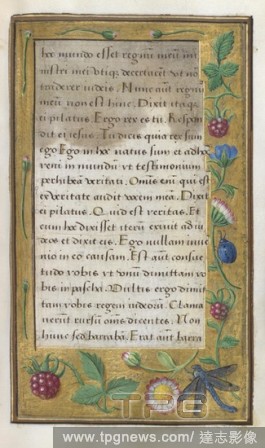 hoc mundo esset regnum meum mi
nistri mei utiq; decertarent ut no
traderer iudeis. Nunc aut regnū
meū non est hinc. Dixit itaq;
ei pilatus. Ergo rex es tu. Respon
dit ei iesus. Tu dicis quia rex sum
ego. Ego in hoc natus sum et ad hoc
veni in mundū vt testimonium
perhibeā veritati. Omis eni qui est
ex veritate audit vocem meā. Dixit
ei pilatus. Quid est veritas. Et
cum hoc dixisset iterū exiuit ad iu
deos et dixit eis. Ego nullam inue
nio in eo causam. Est aut consue
tudo vobis vt vnū dimittam vo
bis in pascha. Vultis ergo dimit
tam vobis regem iudeorū. Clama
uerunt rursū oms dicentes. Non
hunc sed barrabā. Erat aut barra
TPG
www.tpgnews.com/ 達志影像